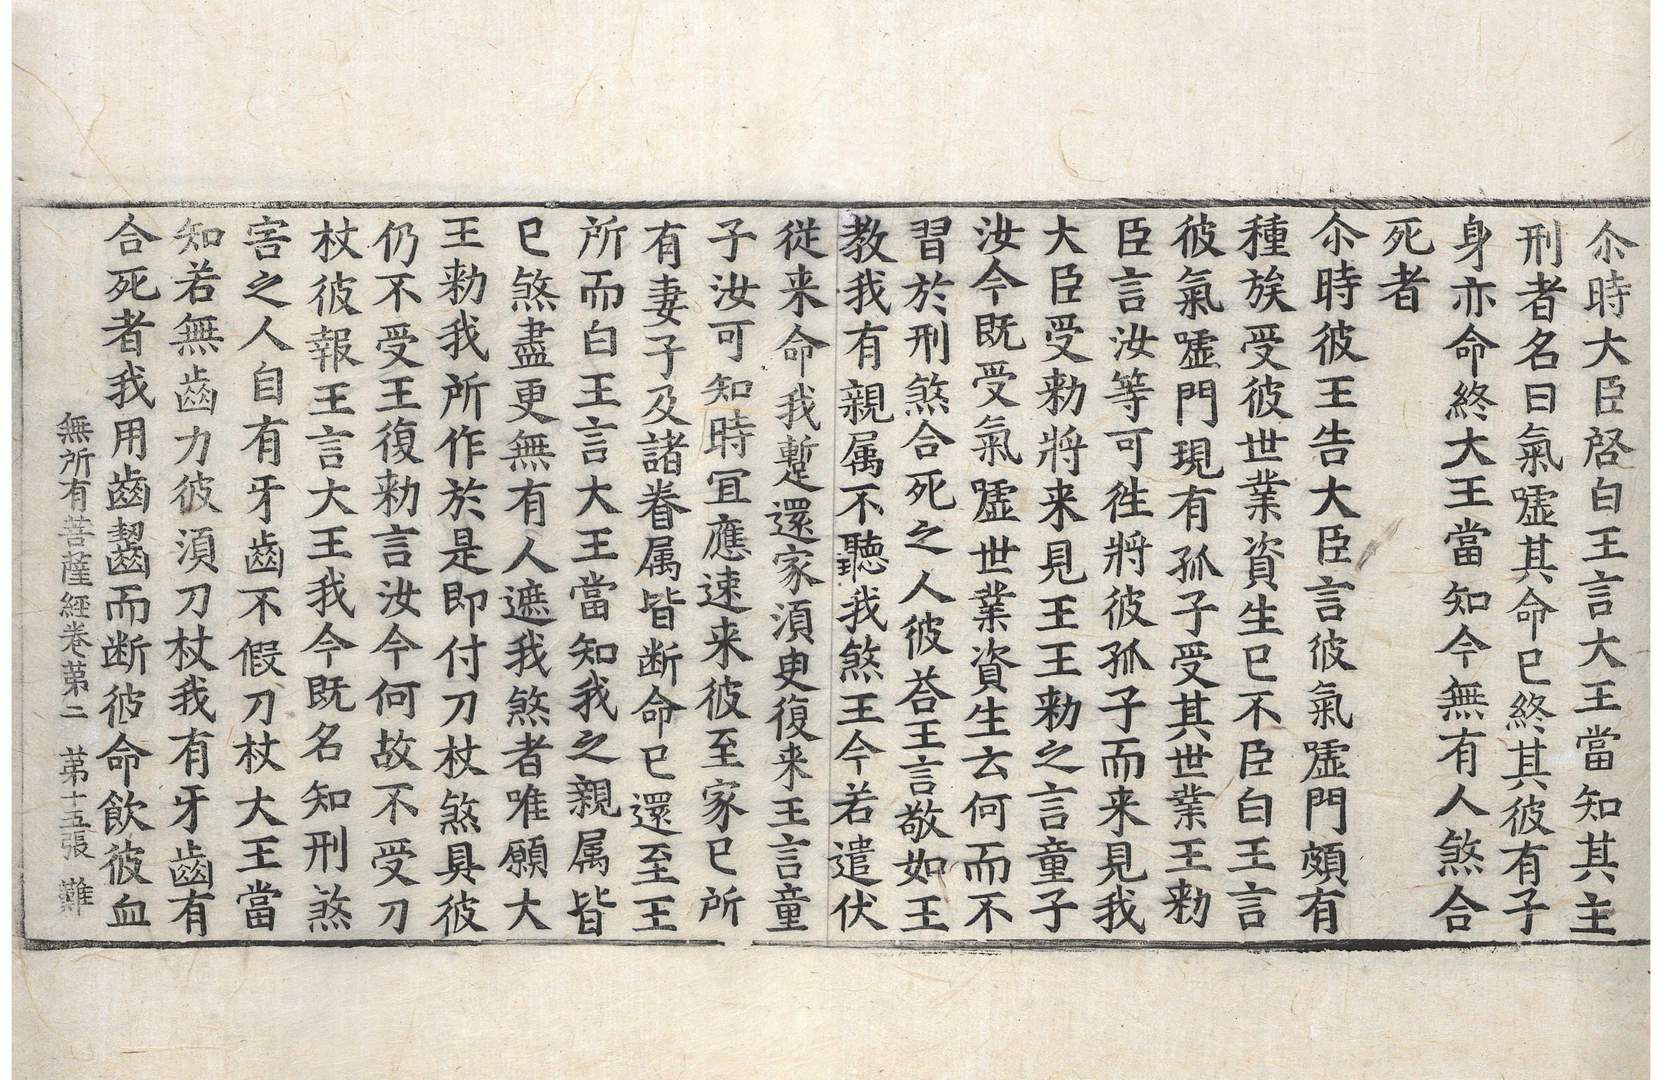 尒時大臣啓白王言大王當知其主
刑者名曰氣嘘其命已終其彼有子
身亦命終大王當知今無有人煞合
死者
尒時彼王告大臣言彼氣嘘門頗有
種族受彼世業資生已不臣白王言
彼氣嘘門現有孤子受其世業王勑
臣言汝等可徃將彼孤子而来見我
大臣受勑將来見王王勑之言童子
汝今既受氣嘘世業資生云何而不
習於刑煞合死之人彼荅王言敬如王
教我有親属不聽我煞王今若遣伏
従来命我蹔還家湏臾復来王言童
子汝可知時冝應速来彼至家已所
有妻子及諸眷属皆断命已還至王
所而白王言大王當知我之親属皆
已煞盡更無有人遮我煞者唯願大
王勑我所作於是即付刀杖煞具彼
仍不受王復勑言汝今何故不受刀
杖彼報王言大王我今既名知刑煞
害之人自有牙齒不假刀杖大王當
知若無齒力彼湏刀杖我有牙齒有
合死者我用齒齧而断彼命飲彼血
無所有菩薩經卷苐二　苐十五張　難